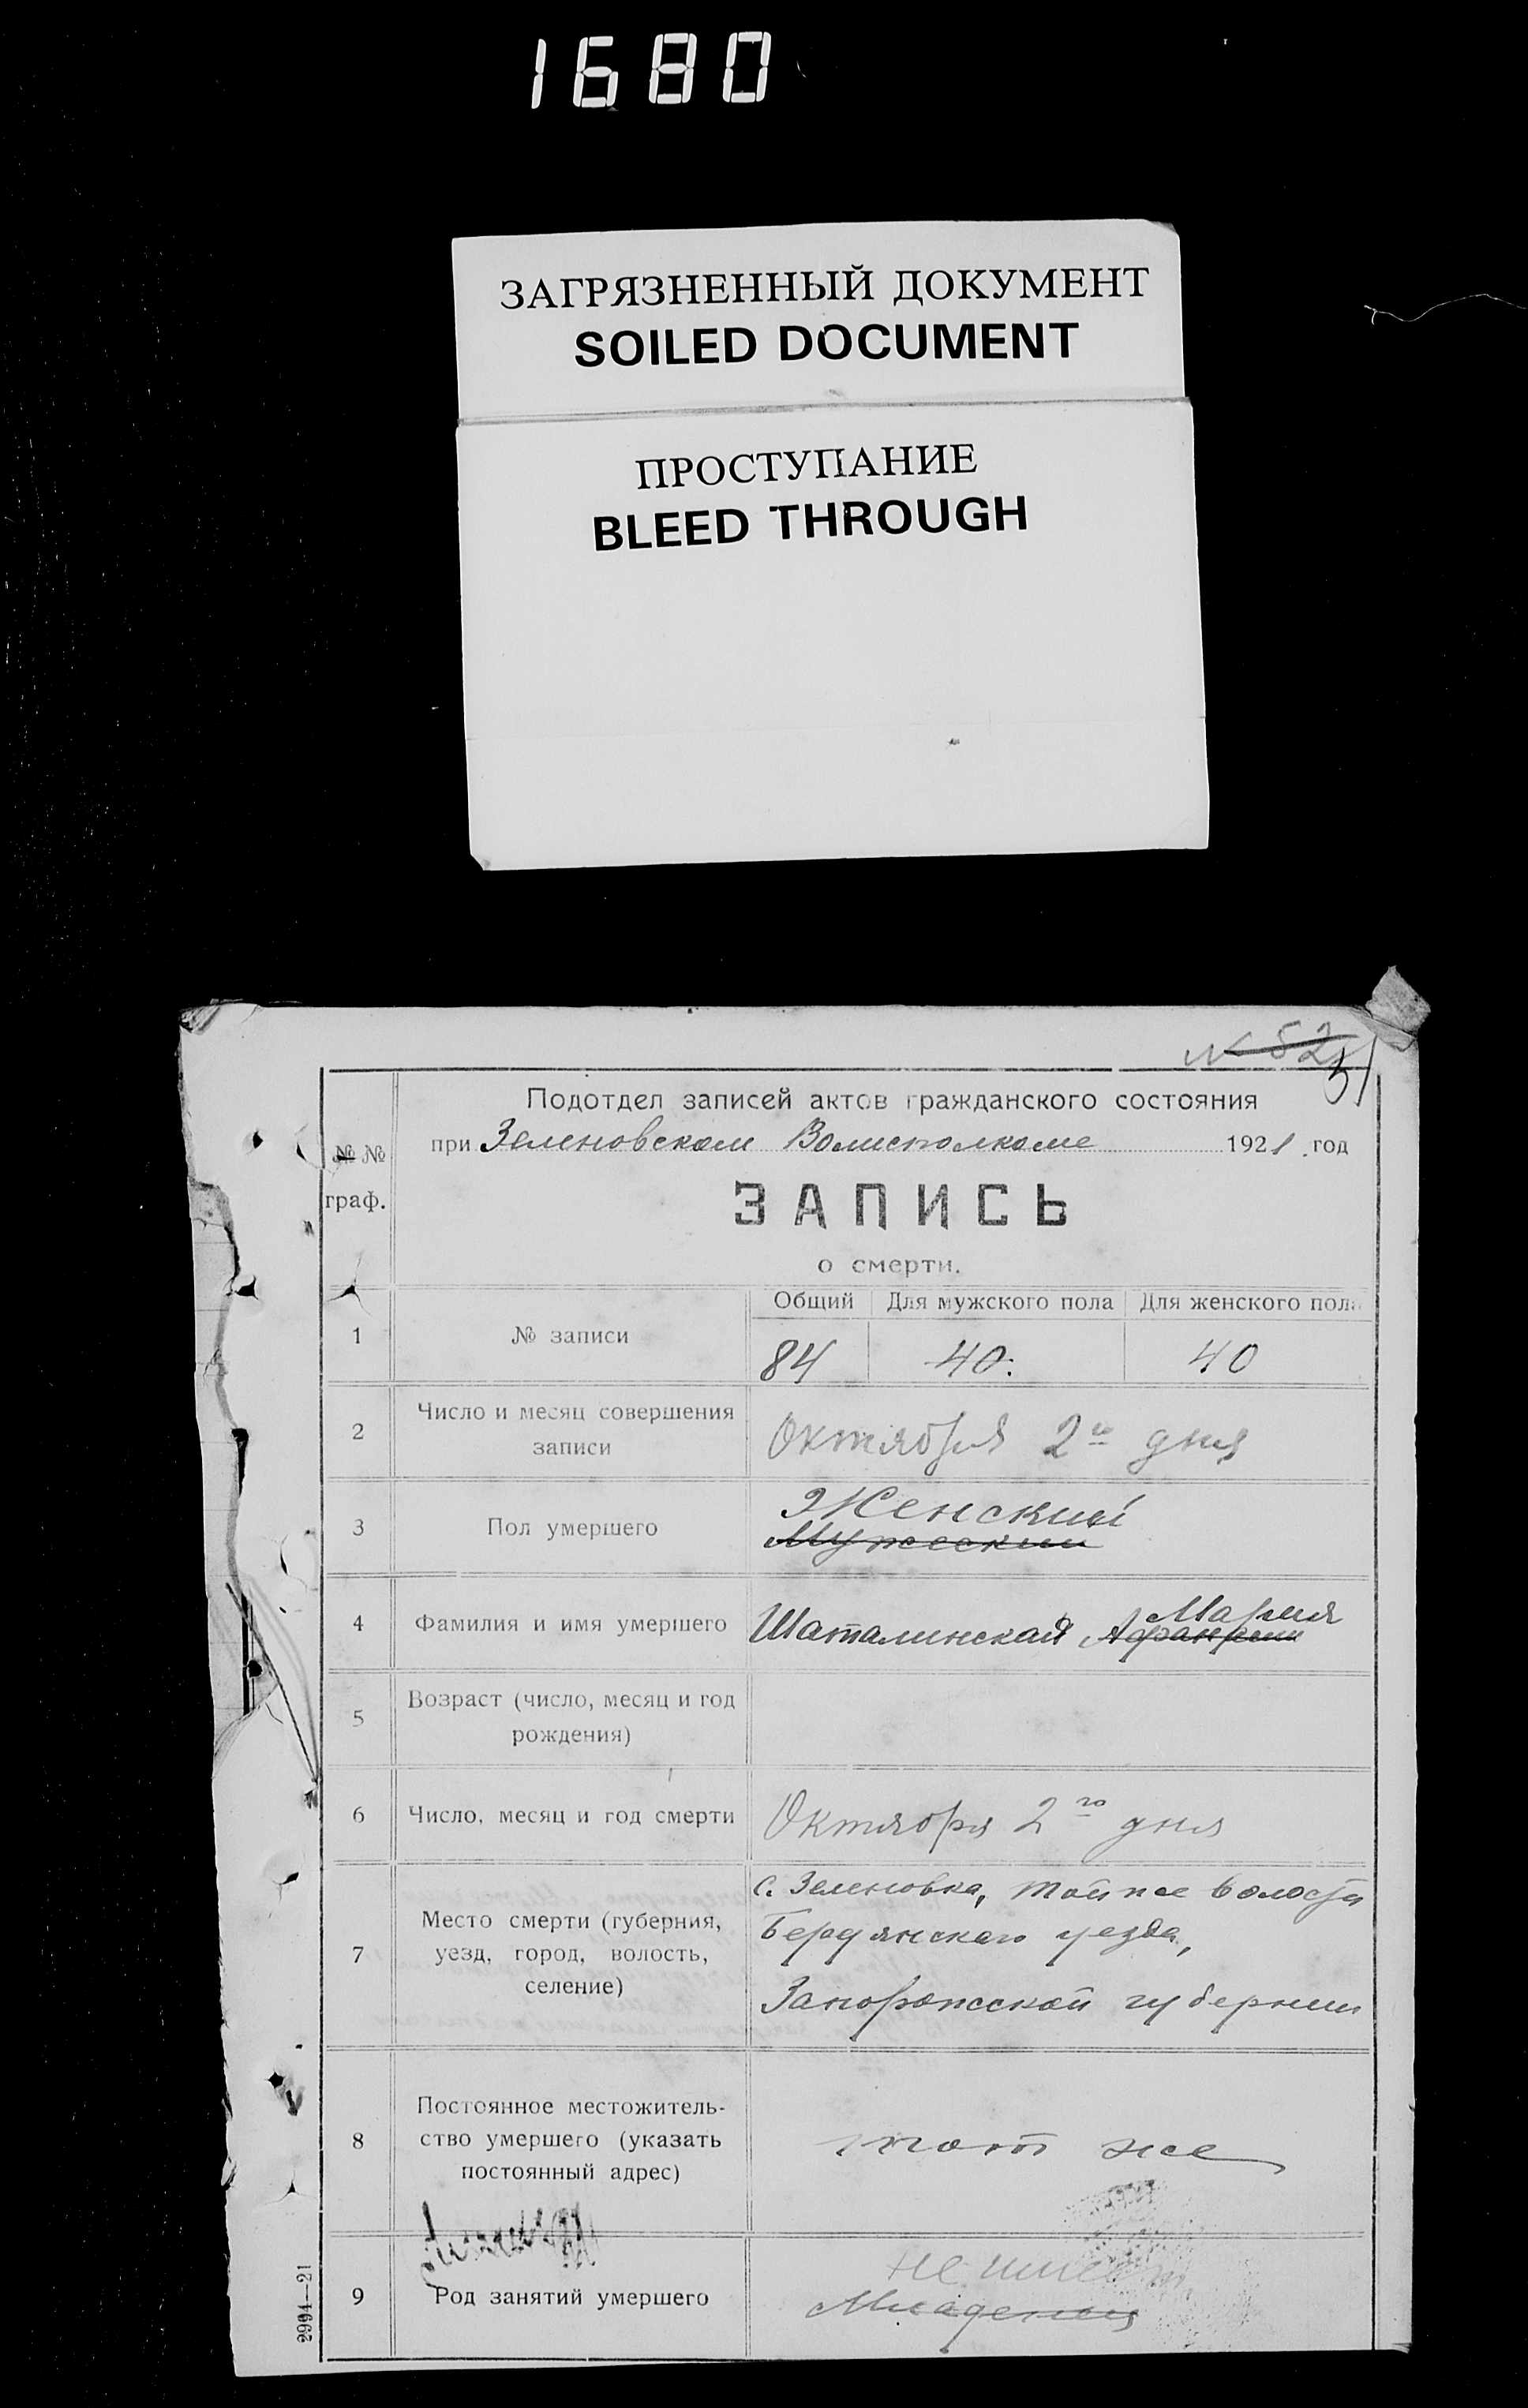 1680
ЗАГРЯЗНЕННЫЙ ДОКУМЕНТ
SOILED DOCUMENT
ПРОСТУПАНИЕ
BLEED THROUGH
№ 52
51
Подотдел записей актов гражданского состояния
№ №
граф.
при Зеленовском Волисполкоме 1921 год
ЗАПИСЬ
о смерти.
Общий Для мужского пола Для женского пола
1 № записи 84 40. 40
2 Число и месяц совершения
записи
Октября 2го дня
3 Пол умершего
Женский
Мужеский
4 Фамилия и имя умершего Шаталинская
Мария
5 Возраст (число, месяц и год
рождения)
6 Число, месяц и год смерти Октября 2го дня
7 Место смерти (губерния,
уезд, город, волость,
селение)
с. Зеленовка, той же волости
Бердянского уезда,
Запорожской губернии
8 Постоянное местожитель-
ство умершего (указать
постоянный адрес)
тот же
9 Род занятий умершего
не имеет
Младенец
2994—21